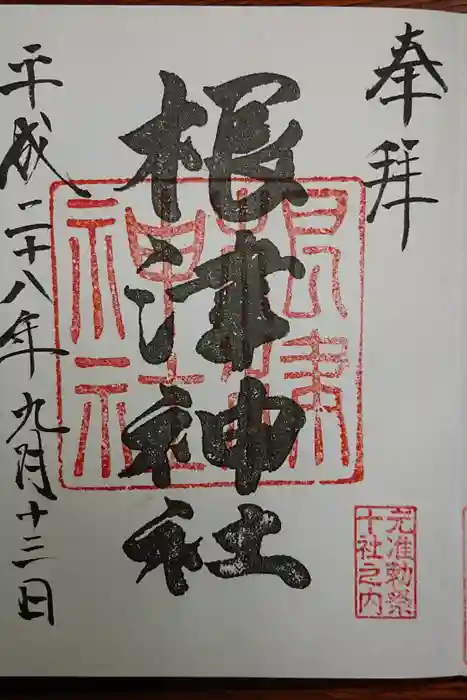 奉拝
根津神社
根津神社
元准勅祭
十社之内
平成二十八年九月十三日